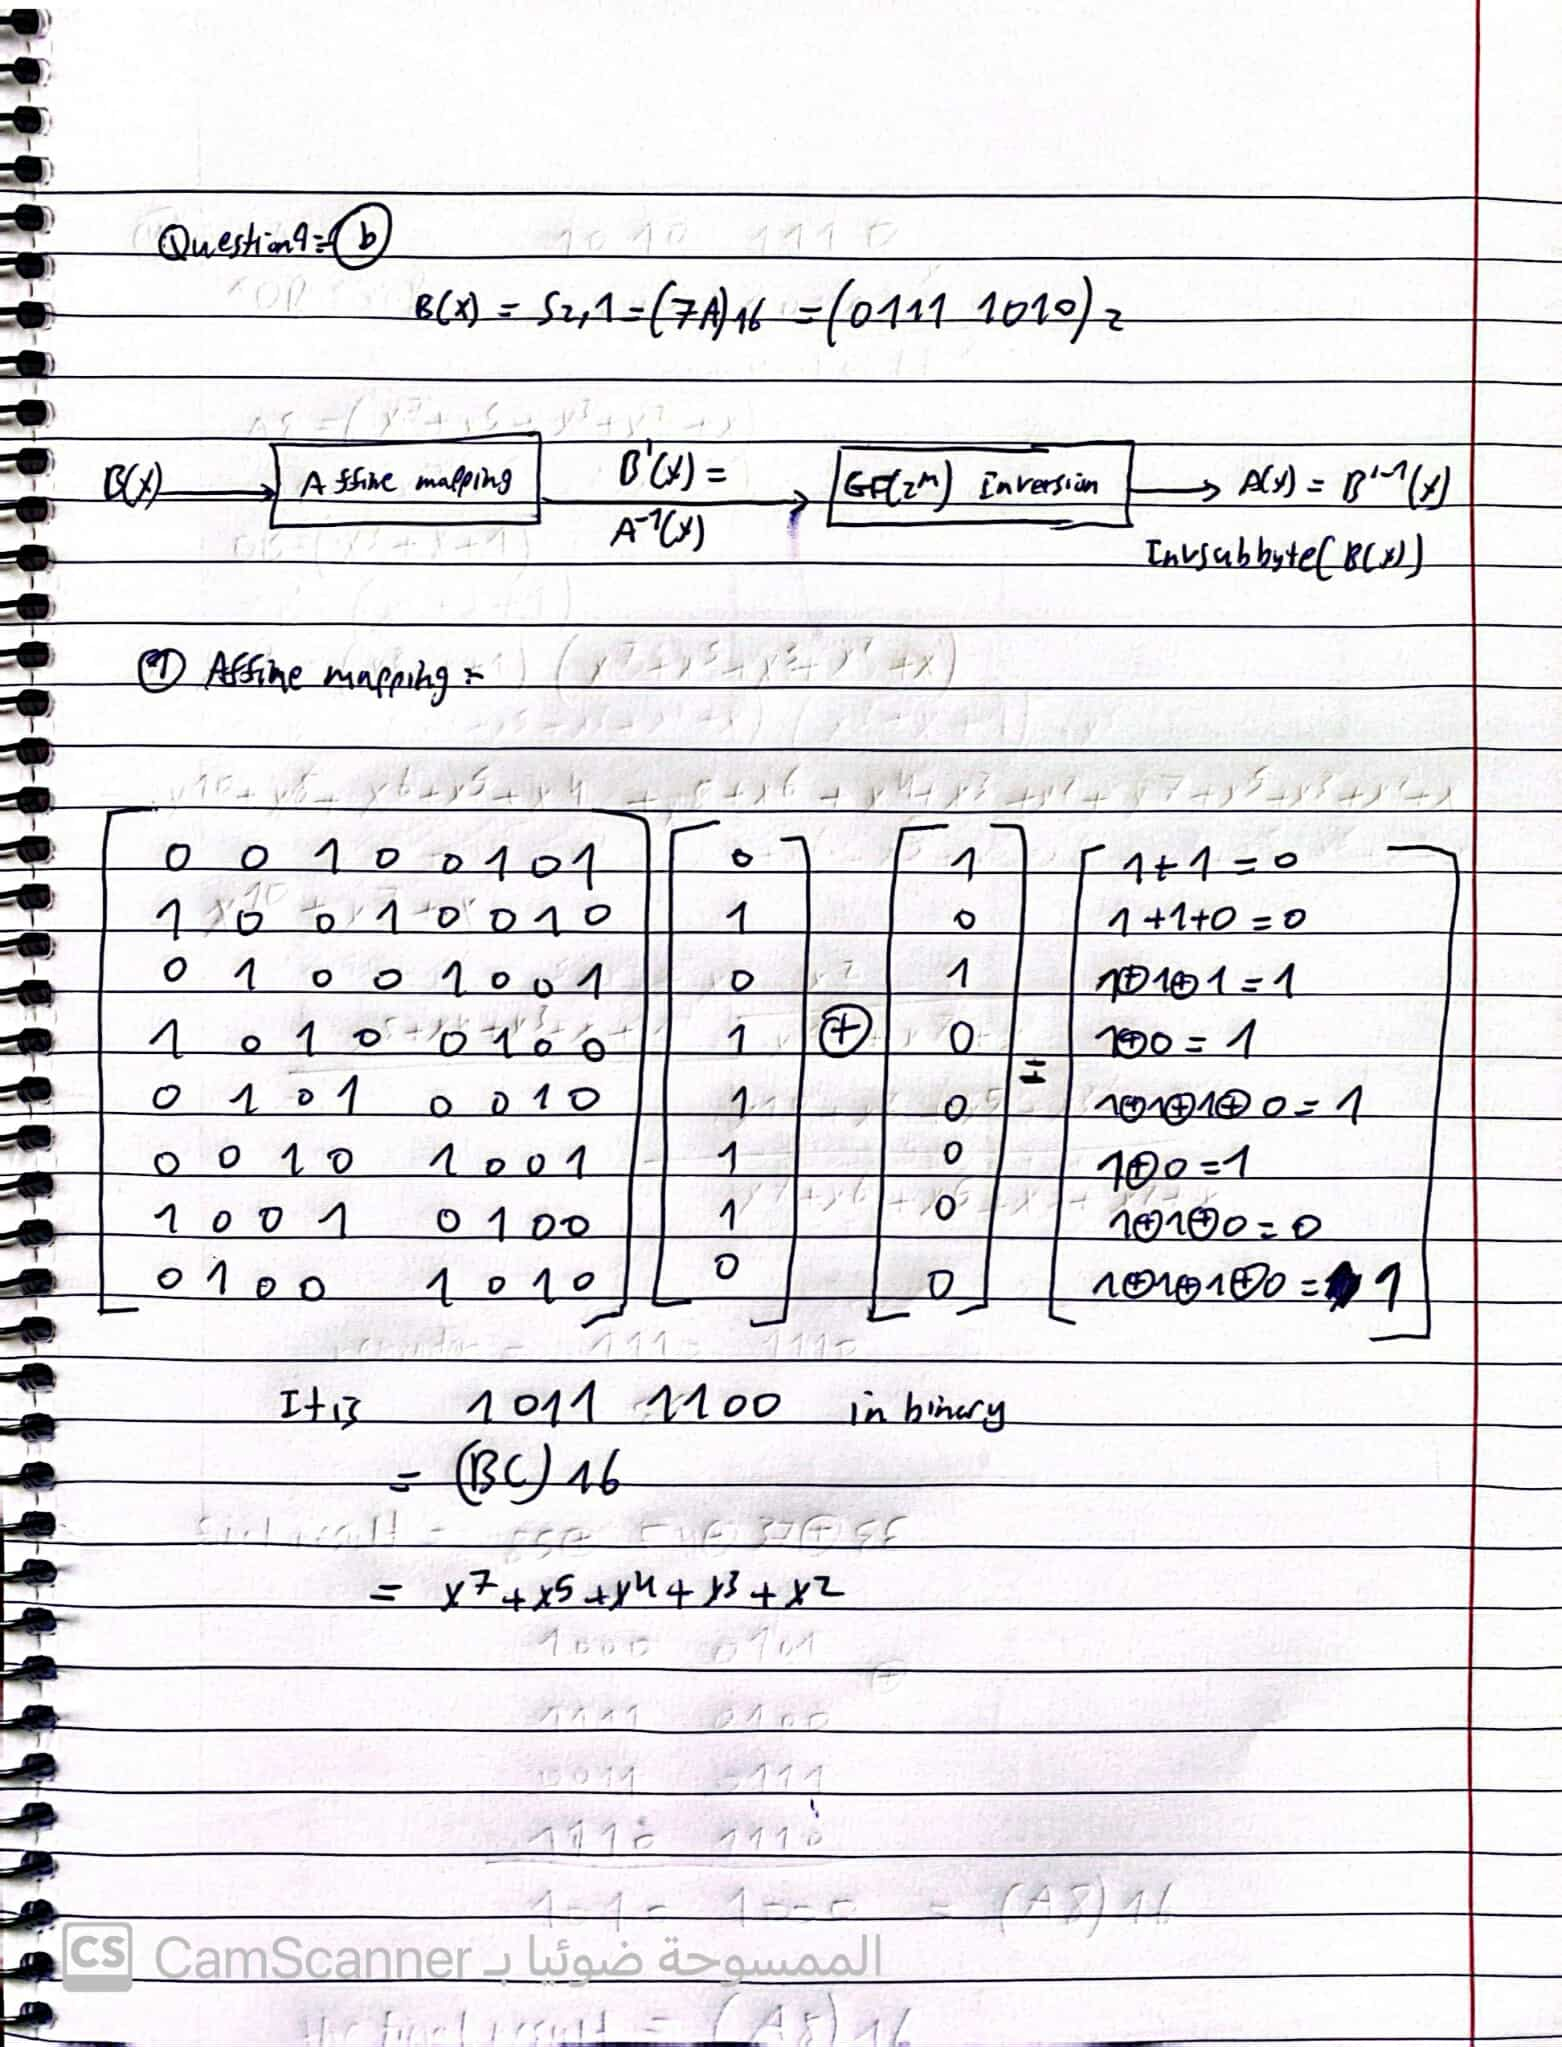 Question9=(b)
B(x) = S2,1=(7A)16 =(0111 1010)2
B(x) Affine mapping B'(x) = GF(2^m) Inversion A(x) = B'^-1(x)
A^-1(x)
Invsubbyte(B(x))
① Affine mapping =
0 0 1 0 0 1 0 1 0 1 1+1=0
1 0 0 1 0 0 1 0 1 0 1+1+0=0
0 1 0 0 1 0 0 1 0 1 1⊕1⊕1=1
1 0 1 0 0 1 0 0 1 ⊕ 0 = 1⊕0=1
0 1 0 1 0 0 1 0 1 0 1⊕1⊕1⊕0=1
0 0 1 0 1 0 0 1 1 0 1⊕0=1
1 0 0 1 0 1 0 0 1 0 1⊕1⊕0=0
0 1 0 0 1 0 1 0 0 0 1⊕1⊕1⊕0= 1
It is 1011 1100 in binary
= (BC)16
= x^7+x^5+x^4+x^3+x^2
CS CamScanner الممسوحة ضوئيا بـ